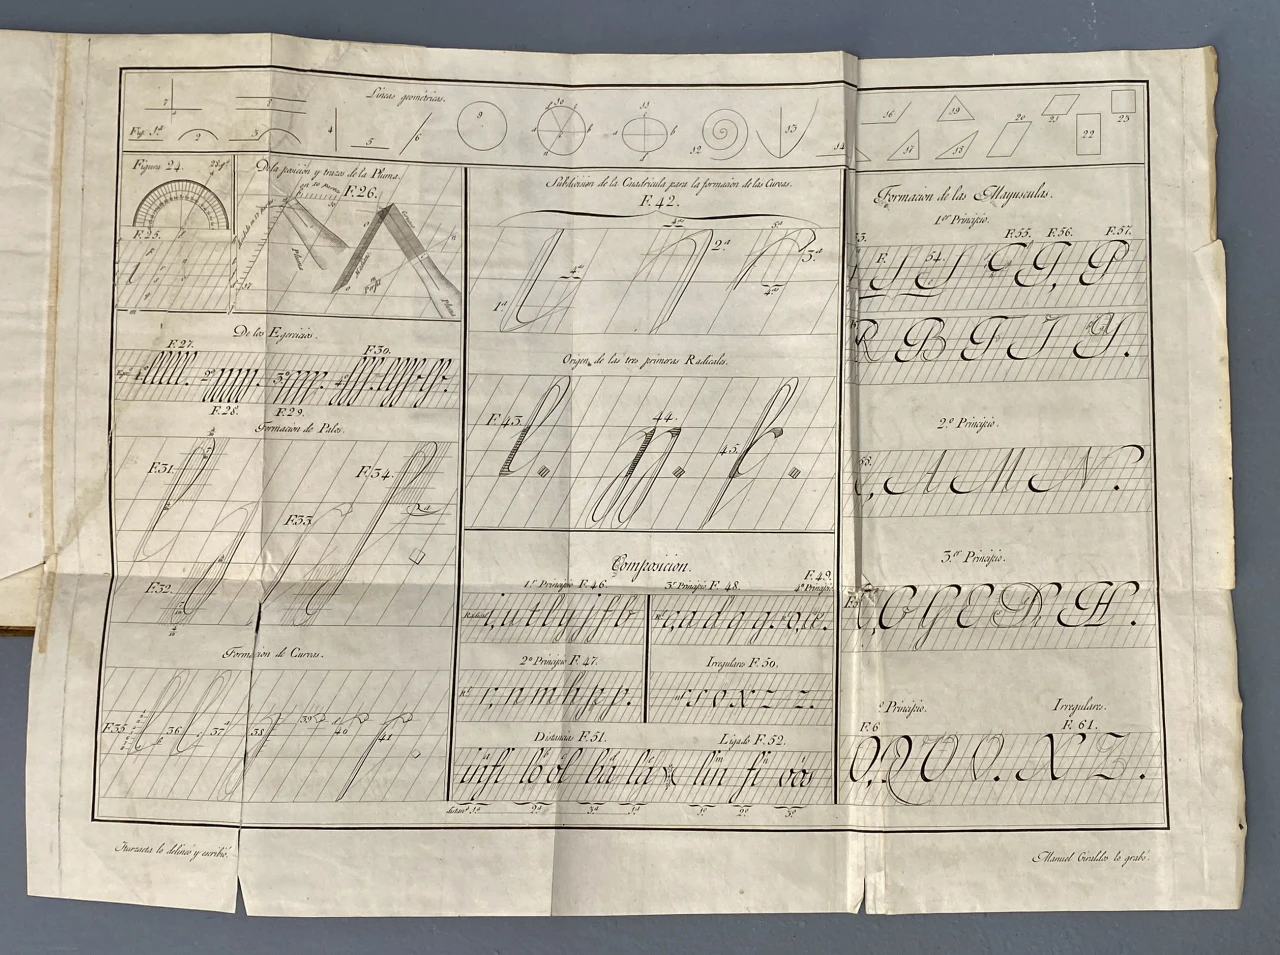 Líneas geométricas.
7
8
Fig. 1ª
2
3
4
5
6
9
10
11
12
13
14
16
17
18
19
20
21
22
23
Figura 24.
F.25.
De la posicion y trazos de la Pluma.
F.26.
De los Egercicios.
F.27.
F.30.
1º
2º
3º
4º
F.28.
F.29.
Formacion de Palos.
F.31.
F.34.
F.33.
F.32.
Formacion de Curvas.
F.35
36
37
38
39
40
41
Subdivision de la Cuadrícula para la formacion de las Curvas.
F.42.
1ª
2ª
3ª
Origen de las tres primeras Radicales.
F.43.
44.
45.
Composicion.
1er Principio F.46.
3er Principio F.48.
F.49.
4º Principio
Radical
i, u t l y j f b
c, a d q g. o, e.
2º Principio F.47.
Irregulares F.50.
r, n m h p p.
r s o x z z.
Distancias F.51.
Ligado F.52.
distanª 1ª
2ª
3ª
1ª
1º
2º
3º
Formacion de las Mayusculas.
1er Principio.
F.
54.
F.55.
F.56.
F.57.
R B T I Y.
2º Principio.
A M N.
3er Principio.
C G E D H.
Principio.
Irregulares.
F.6
F.61.
O, Q U O. X Z.
Iturzaeta lo delineó y escribió.
Manuel Giraldos lo grabó.